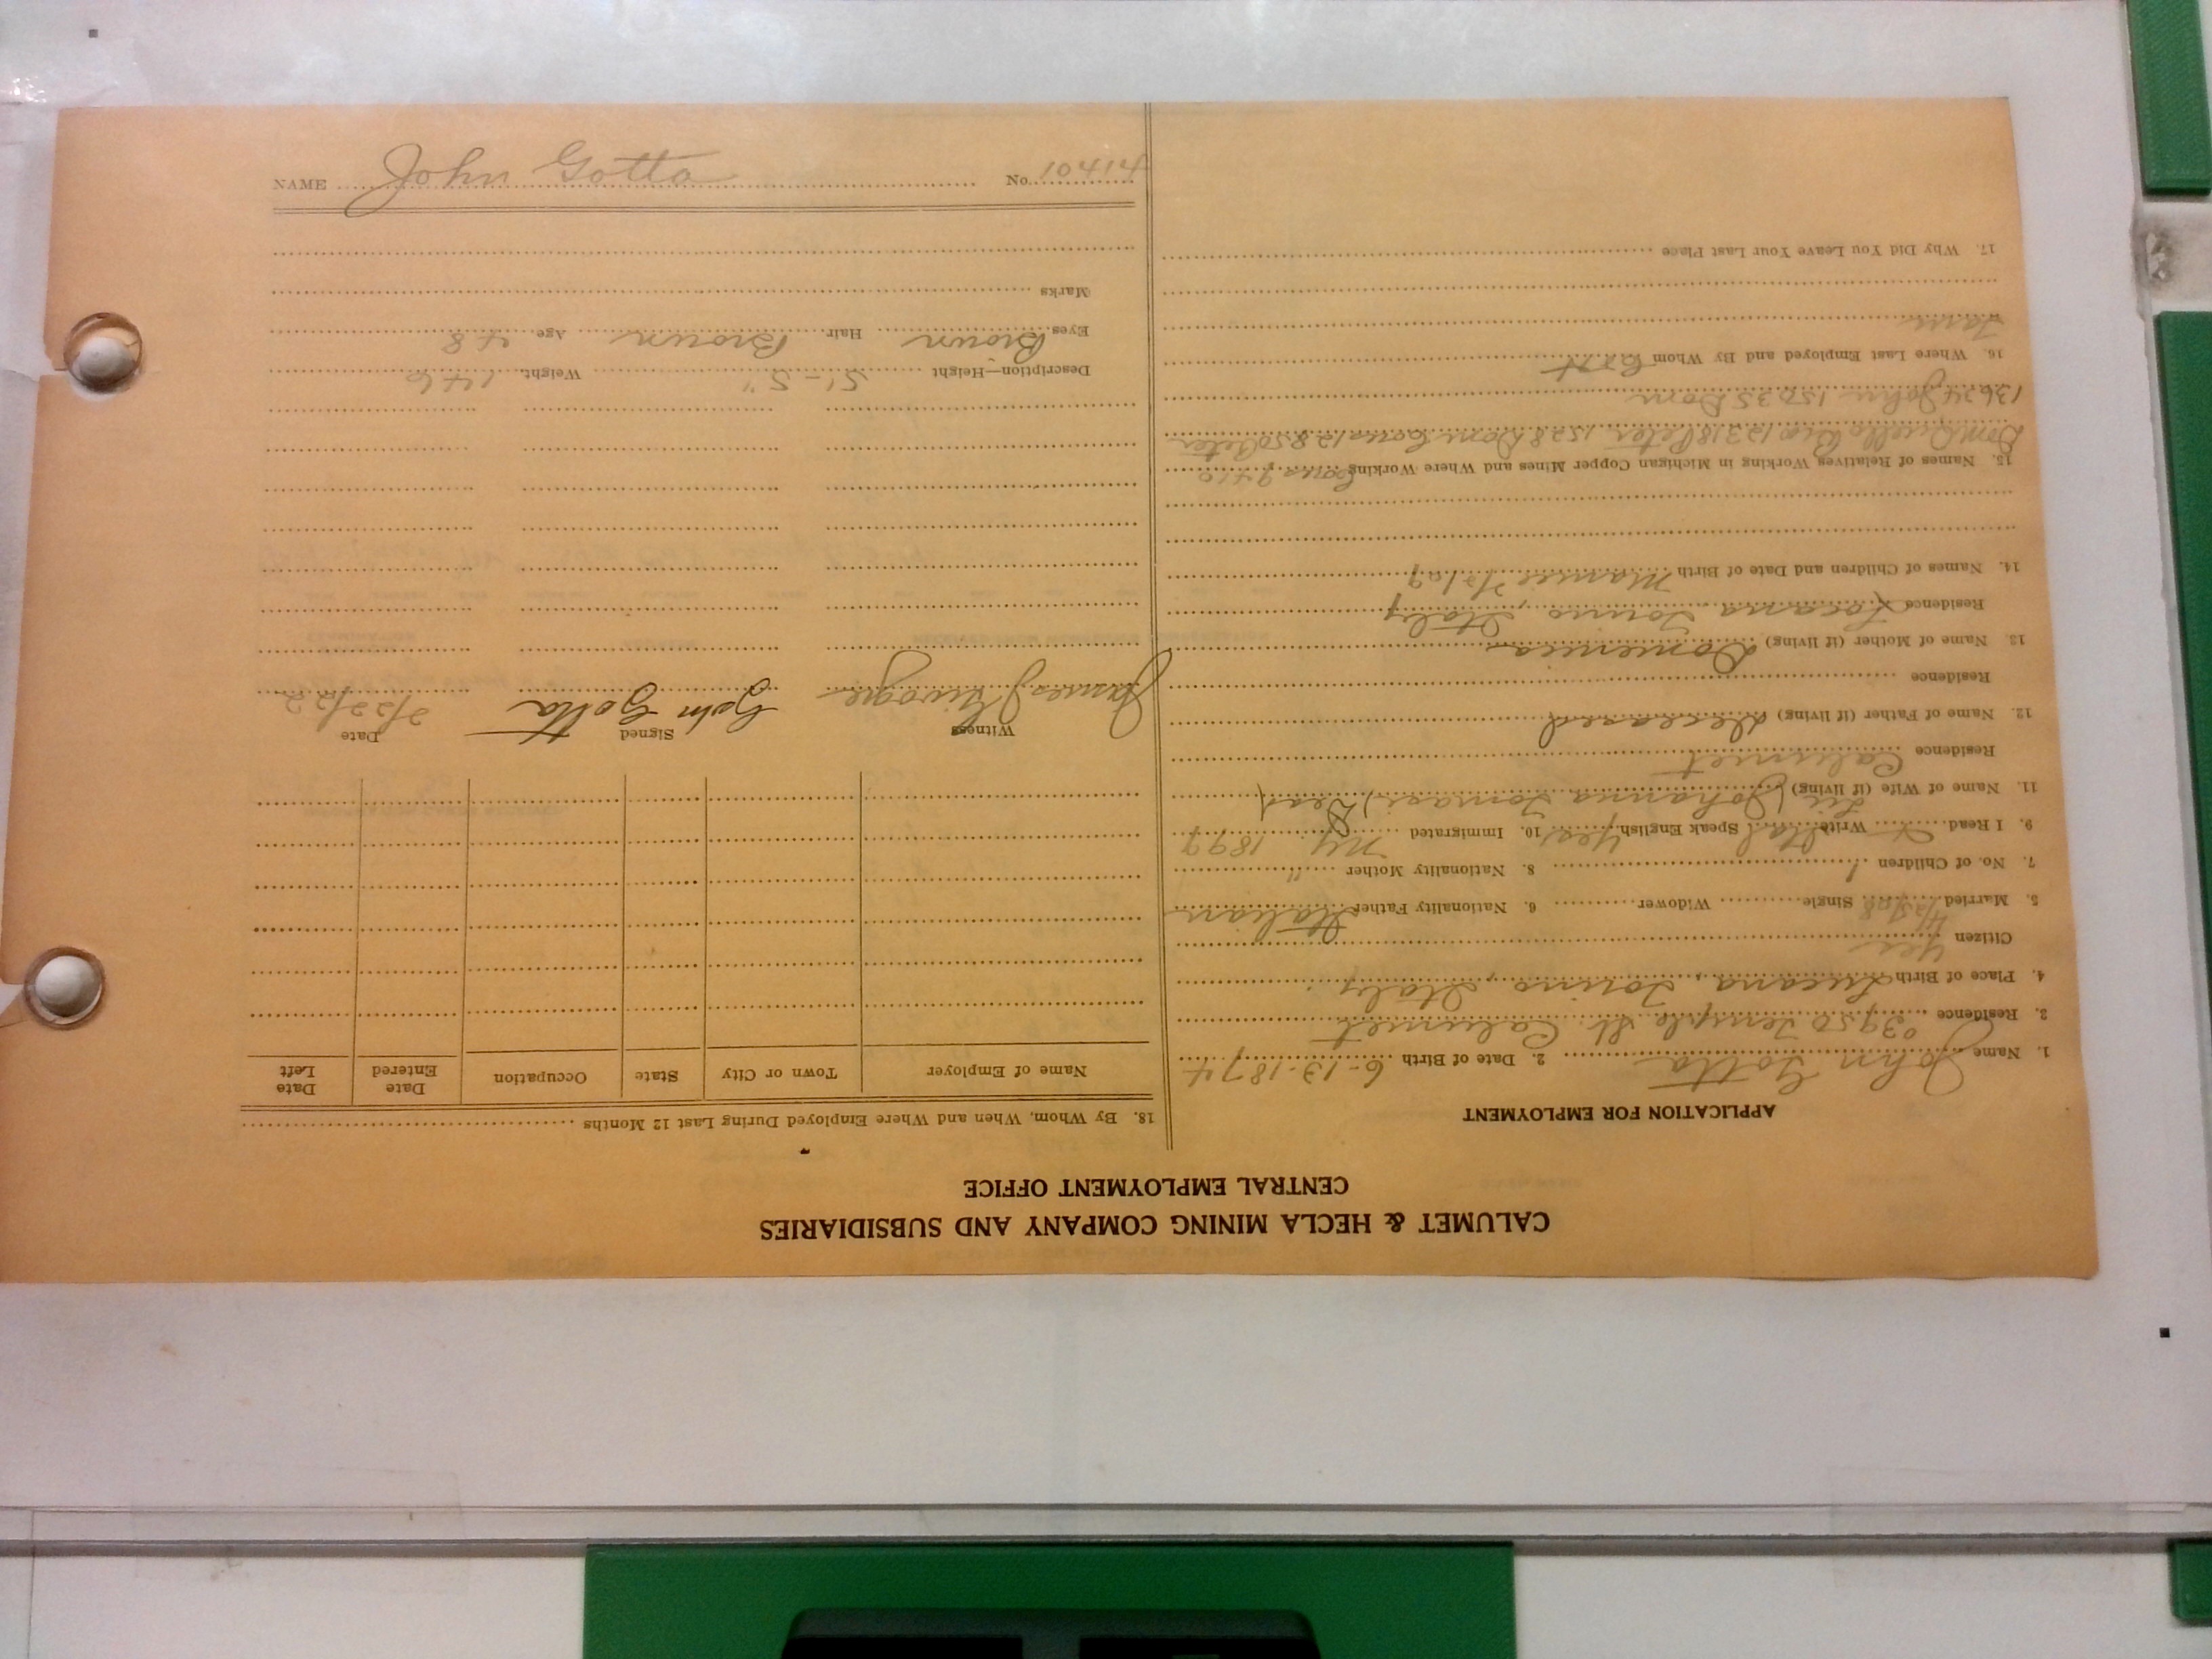 CALUMET & HECLA MINING COMPANY AND SUBSIDIARIES
CENTRAL EMPLOYMENT OFFICE
APPLICATION FOR EMPLOYMENT
1. Name John Gotta 2. Date of Birth 6-13-1874
3. Residence 3950 Temple St. Calumet
4. Place of Birth Lucana, Torino, Italy
Citizen Yes
5. Married 4/25/08 Single Widower 6. Nationality Father Italian
7. No. of Children 1 8. Nationality Mother "
9. I Read Write Ital Speak English yes 10. Immigrated N.Y. 1899
11. Name of Wife (if living) (Johanna Tomaci) Dead
Residence Calumet
12. Name of Father (if living) deceased
Residence
13. Name of Mother (if living) Domenica
Residence Locana Torino, Italy
14. Names of Children and Date of Birth Mamie
15. Names of Relatives Working in Michigan Copper Mines and Where Working 9410
Dom 12318 Peter 1528 Dom 12850 Peter
13624 John 15035 Dom
16. Where Last Employed and By Whom
17. Why Did You Leave Your Last Place
18. By Whom, When and Where Employed During Last 12 Months
Name of Employer Town or City State Occupation Date Entered Date Left
Witness Signed Date
James John Gotta 2/22/22
Description—Height 5'-5" Weight 146
Eyes Brown Hair Brown Age 48
Marks
NAME John Gotta No. 10414